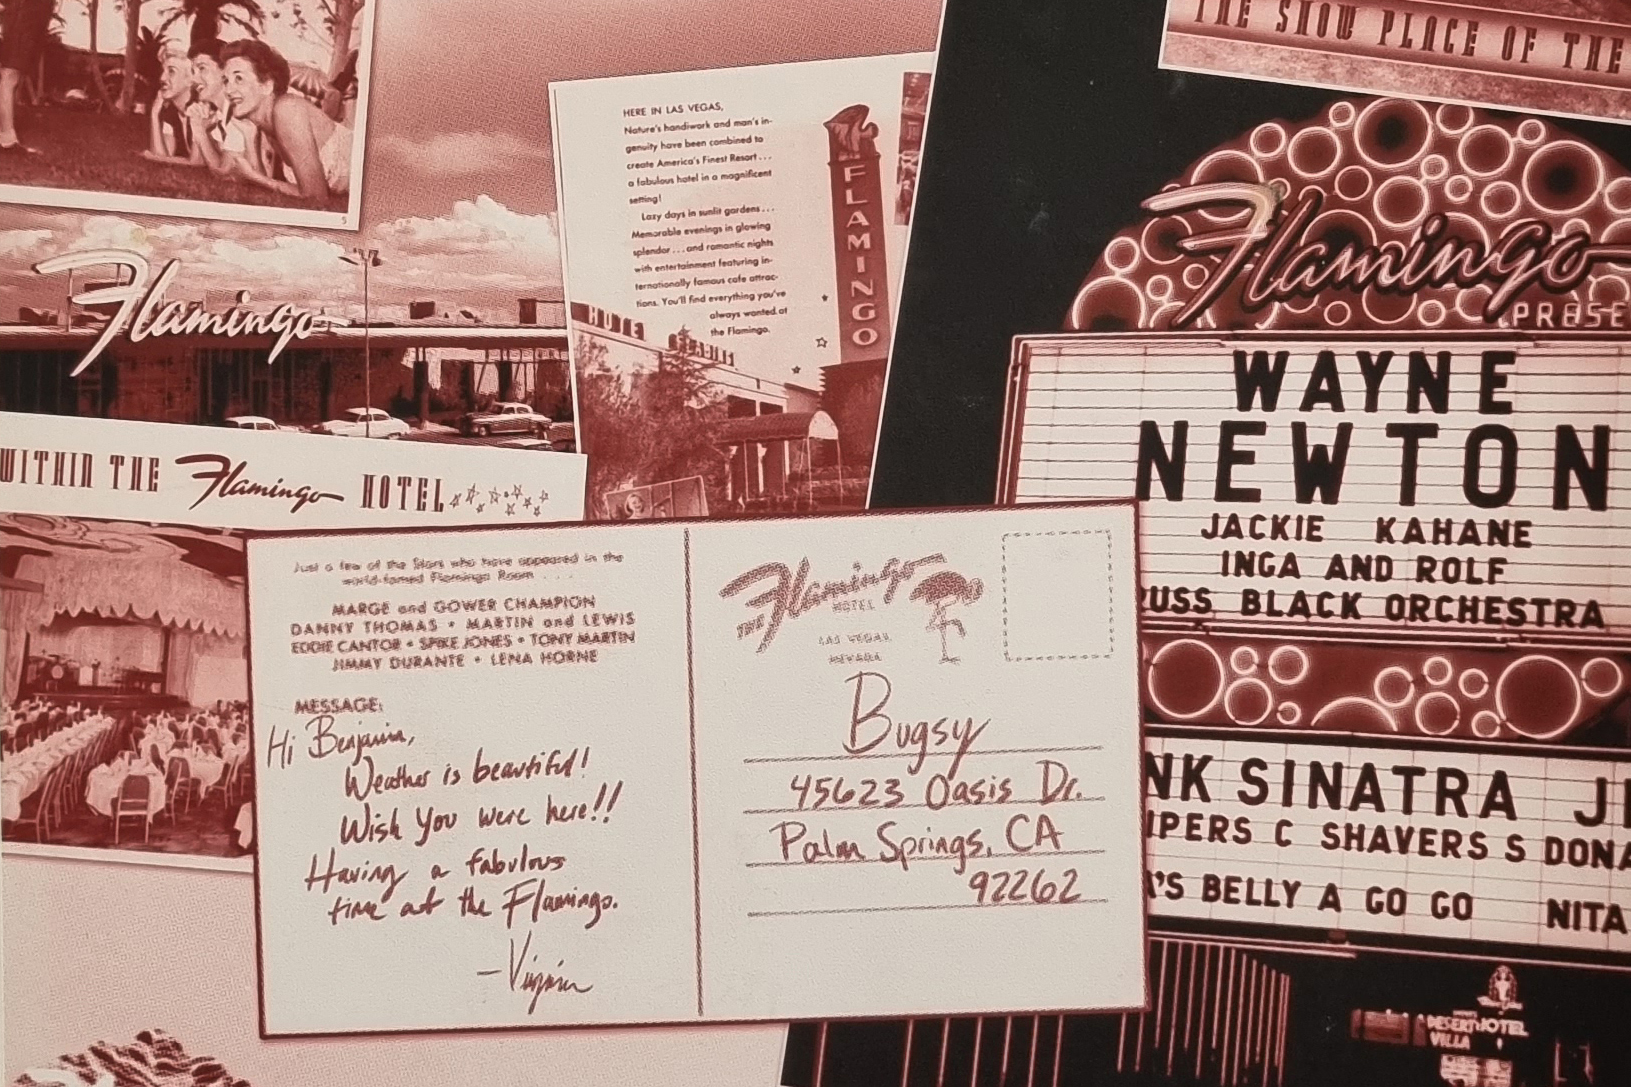 THE SHOW PLACE OF THE
HERE IN LAS VEGAS,
Nature's handiwork and man's in-
genuity have been combined to
create America's Finest Resort...
a fabulous hotel in a magnificent
setting!
Lazy days in sunlit gardens...
Memorable evenings in glowing
splendor...and romantic nights
with entertainment featuring in-
ternationally famous cafe attrac-
tions. You'll find everything you've
always wanted at
the Flamingo.
FLAMINGO
HOTEL
Flamingo
WITHIN THE Flamingo HOTEL
Flamingo
PRESE
WAYNE
NEWTON
JACKIE KAHANE
INGA AND ROLF
USS BLACK ORCHESTRA
NK SINATRA J
IPERS C SHAVERS S DONA
A'S BELLY A GO GO NITA
DESERT HOTEL
VILLA
Just a few of the Stars who have appeared in the
world-famed Flamingo Room . . . .
MARGE and GOWER CHAMPION
DANNY THOMAS • MARTIN and LEWIS
EDDIE CANTOR • SPIKE JONES • TONY MARTIN
JIMMY DURANTE • LENA HORNE
MESSAGE:
Hi Benjamin,
Weather is beautiful!
Wish You were here!!
Having a fabulous
time at the Flamingo.
—Virginia
THE Flamingo
HOTEL
LAS VEGAS,
NEVADA
Bugsy
45623 Oasis Dr.
Palm Springs, CA
92262